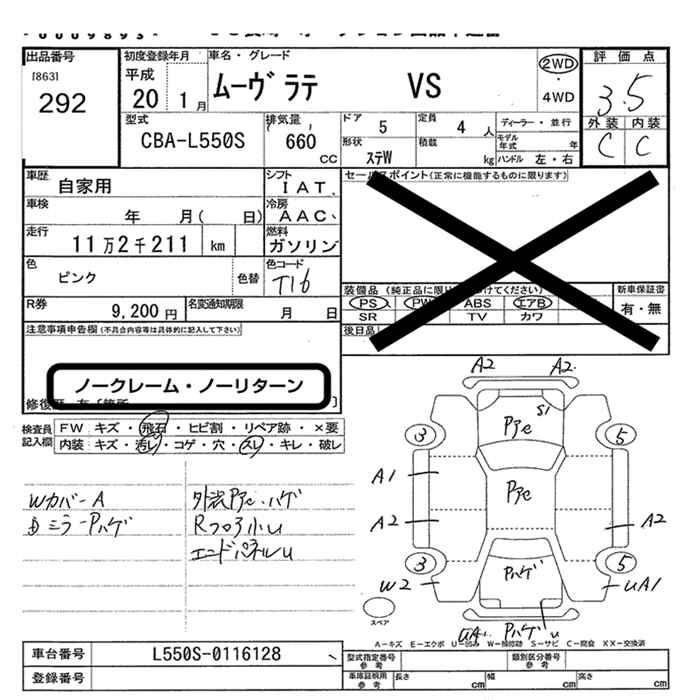 出品番号 初度登録年月 車名・グレード 評価点
[863] 平成 ムーヴ ラテ VS 2WD
292 20 1月 4WD 3.5
型式 排気量 ドア 5 定員 4人 ディーラー・並行 外装 内装
CBA-L550S 660cc 形状 ステW 積載 kg モデル年式 年 C C
ハンドル 左・右
車歴 自家用 シフト IAT セールスポイント(正常に機能するものに限ります)
車検 年 月( 日) 冷房 AAC
走行 11万2千211 km 燃料 ガソリン
色 ピンク 色替 色コード T16
装備品(純正品に限り けてください) 新車保証書
PS PW ABS エアB 有・無
R券 9,200円 名変通知期限 月 日 SR TV カワ
注意事項申告欄(不具合内容等は具体的に記入して下さい) 後日品
ノークレーム・ノーリターン
検査員記入欄 FW キズ・飛石・ヒビ割・リペア跡・×要
内装 キズ・汚レ・コゲ・穴・スレ・キレ・破レ
Wカバー A
ミラー Pハゲ
Rフロア小U
エンドパネルU
A2 A2
S1
3 5
A1
A2 A2
3 5
W2 Pハゲ UA1
スペア
Pハゲ U
A-キズ E-エクボ W-補修跡 S-サビ C-腐食 XX-交換済
車台番号 L550S-0116128 型式指定番号 参考 類別区分番号 参考
登録番号 車庫証明用 参考 長さ cm 幅 cm 高さ cm